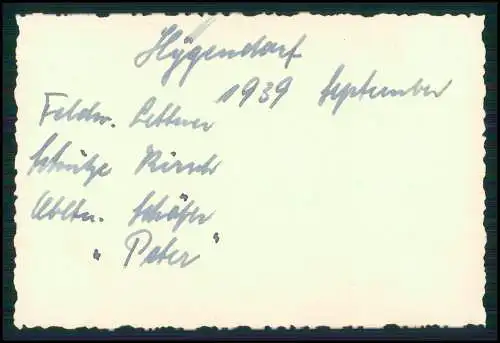 Hÿgendorf
1939 September
Feldw. Lettner
Schütze Kirsch
Obltn. Schäfer
" Peter "